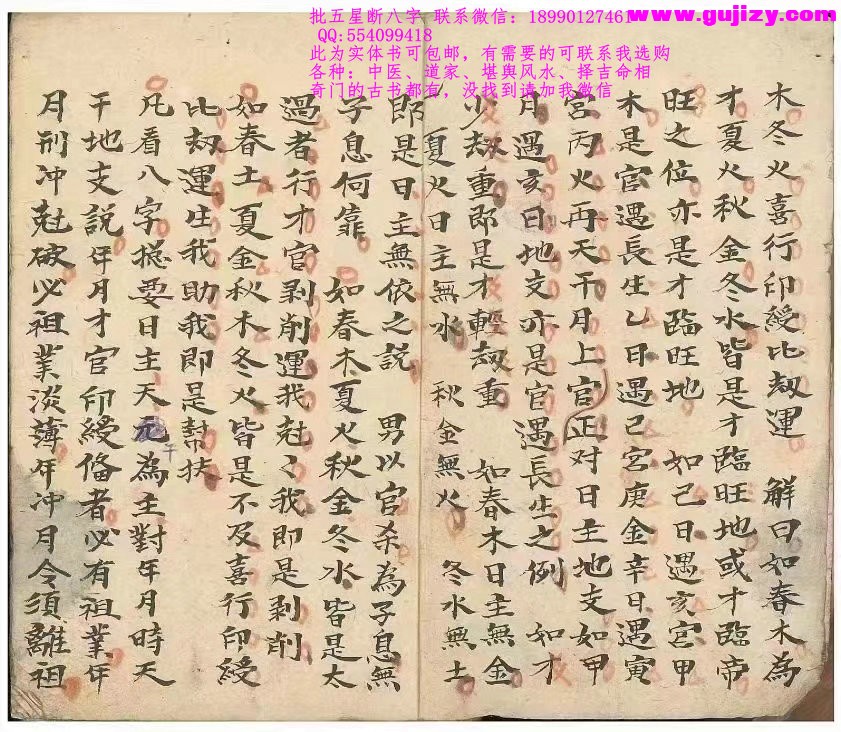 批五星断八字 联系微信：18990127461
www.gujizy.com
QQ:554099418
此为实体书可包邮，有需要的可联系我选购
各种：中医、道家、堪舆风水、择吉命相
奇门的古书都有，没找到请加我微信
木冬火喜行印綬比刼運 解曰如春木為
才夏火秋金冬水皆是才臨旺地或才臨帝
旺之位亦是才臨旺地 如己日遇亥宮甲
木是官遇長生乙日遇己宮庚金辛日遇寅
宮丙火再天干月上官正对日主地支如甲
月遇亥日地支亦是官遇長生之例 如才
少刼重即是才輕刼重 如春木日主無金
夏火日主無水 秋金無火 冬水無土
即是日主無依之説 男以官杀為子息無
子息何靠 如春木夏火秋金冬水皆是太
過者行才官剥削運我尅〻我即是剥削
如春土夏金秋木冬火皆是不及喜行印綬
比刼運生我助我即是幫扶
凡看八字捴要日主天元為主對年月時天
干
干地支説年月才官印綬俻者必有祖業年
月刑冲尅破必祖業淡薄年冲月令須離祖